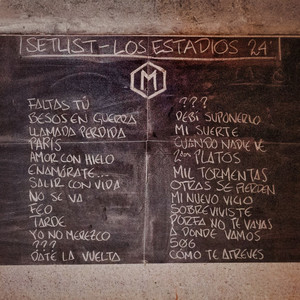 SETLIST - LOS ESTADIOS 24'
M
FALTAS TÚ
BESOS EN GUERRA
LLAMADA PERDIDA
PARÍS
AMOR CON HIELO
ENAMÓRATE...
SALIR CON VIDA
NO SE VA
FEO
TARDE
YO NO MEREZCO
???
DATE LA VUELTA
???
DEBÍ SUPONERLO
MI SUERTE
CUANDO NADIE VE
2º PLATOS
MIL TORMENTAS
OTRAS SE PIERDEN
MI NUEVO VICIO
SOBREVIVISTE
PORFA NO TE VAYAS
A DONDE VAMOS
506
CÓMO TE ATREVES